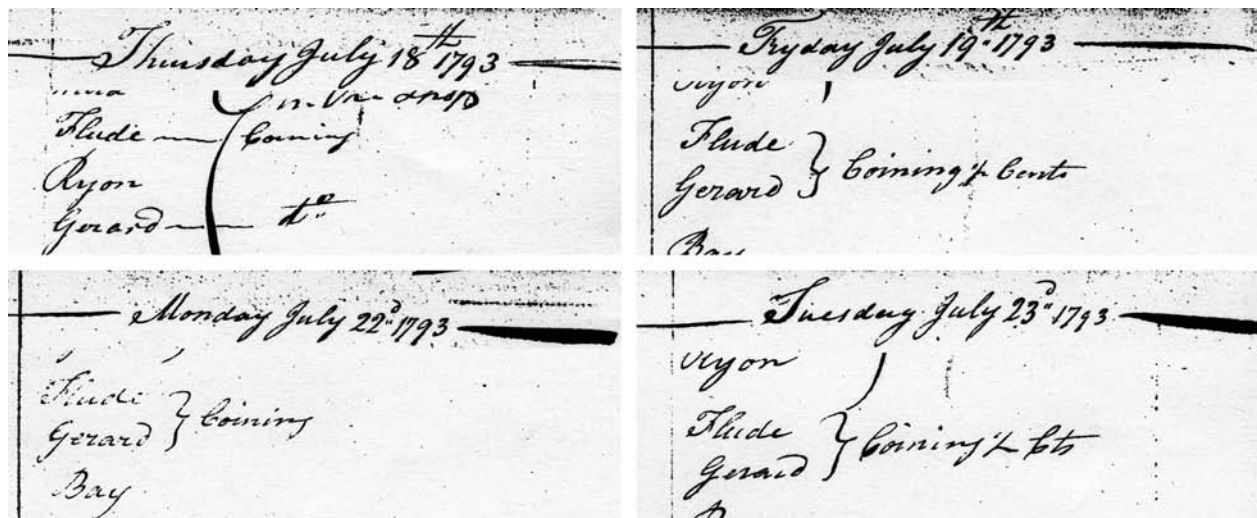 Thursday July 18th 1793
Flude
Coining
Ryon
Gerard do
Fryday July 19th 1793
Flude
Gerard
Coining ½ Cents
Monday July 22d 1793
Flude
Gerard
Coining
Bay
Tuesday July 23d 1793
Ryon
Flude
Gerard
Coining ½ Cts